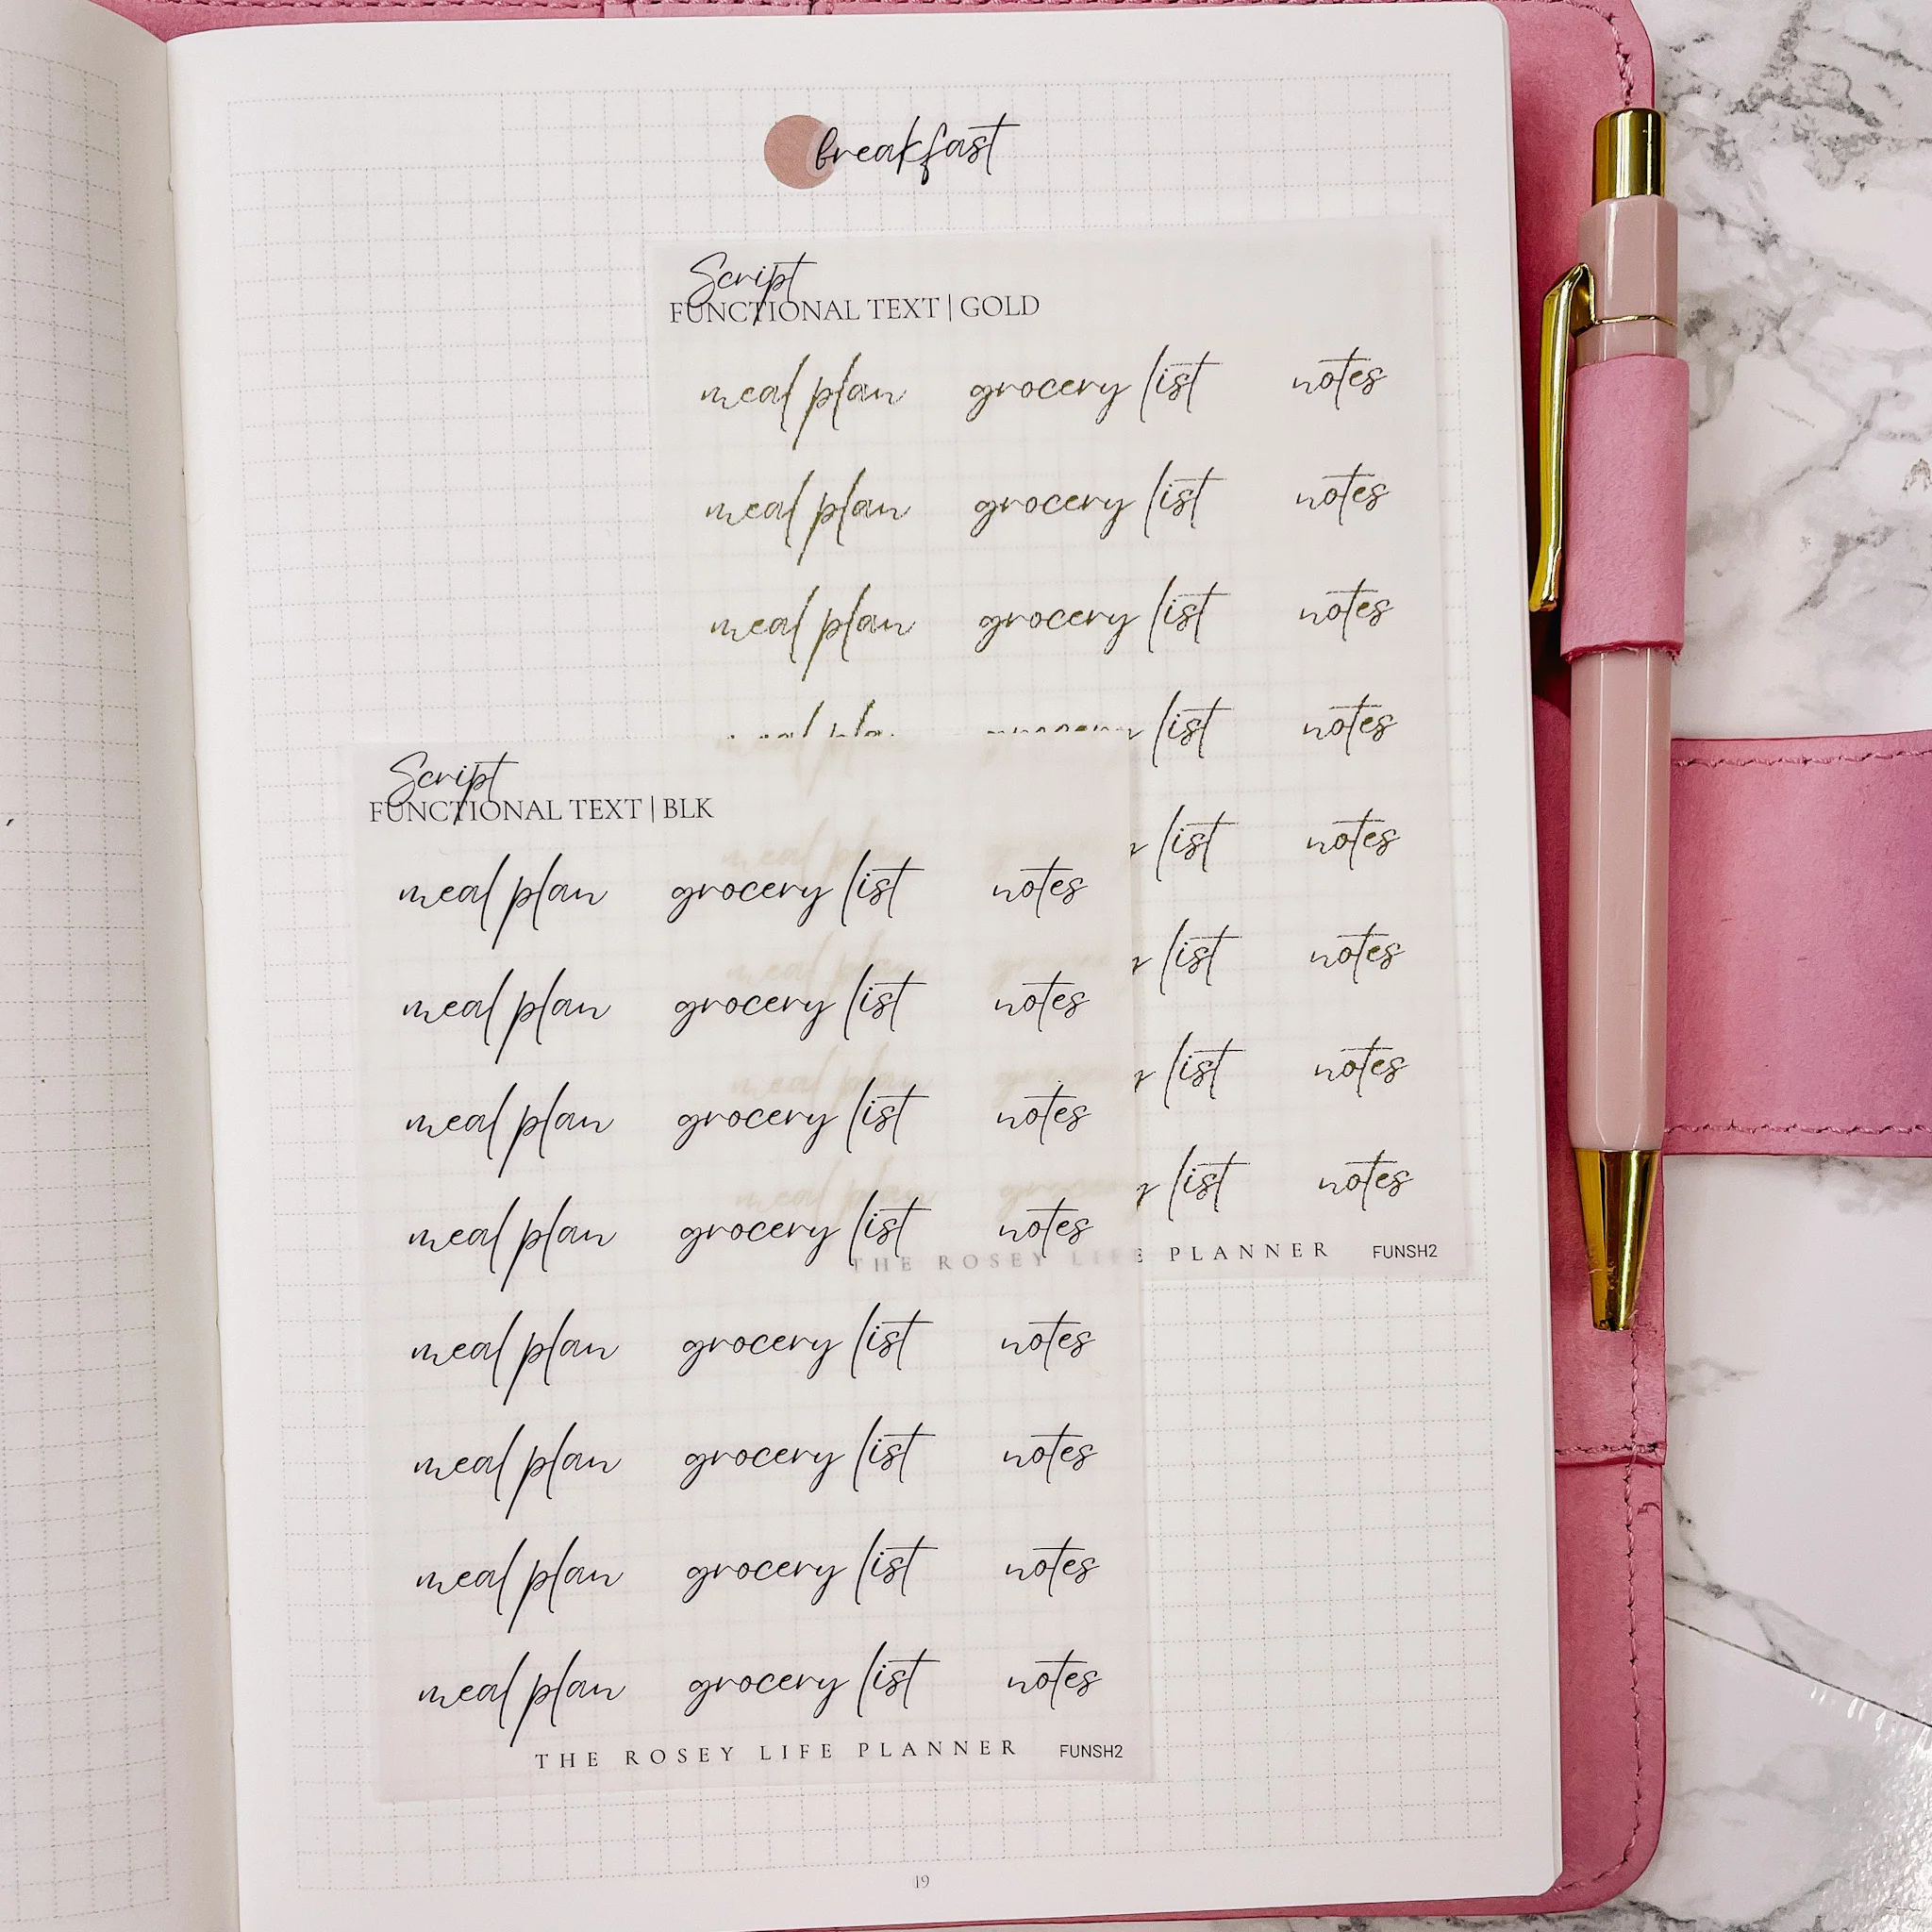 breakfast
Script
FUNCTIONAL TEXT | GOLD
meal plan grocery list notes
meal plan grocery list notes
meal plan grocery list notes
meal plan grocery list notes
meal plan list notes
meal plan list notes
meal plan list notes
meal plan list notes
THE ROSEY LIFE PLANNER FUNSH2
Script
FUNCTIONAL TEXT | BLK
meal plan grocery list notes
meal plan grocery list notes
meal plan grocery list notes
meal plan grocery list notes
meal plan grocery list notes
meal plan grocery list notes
meal plan grocery list notes
meal plan grocery list notes
THE ROSEY LIFE PLANNER FUNSH2
19